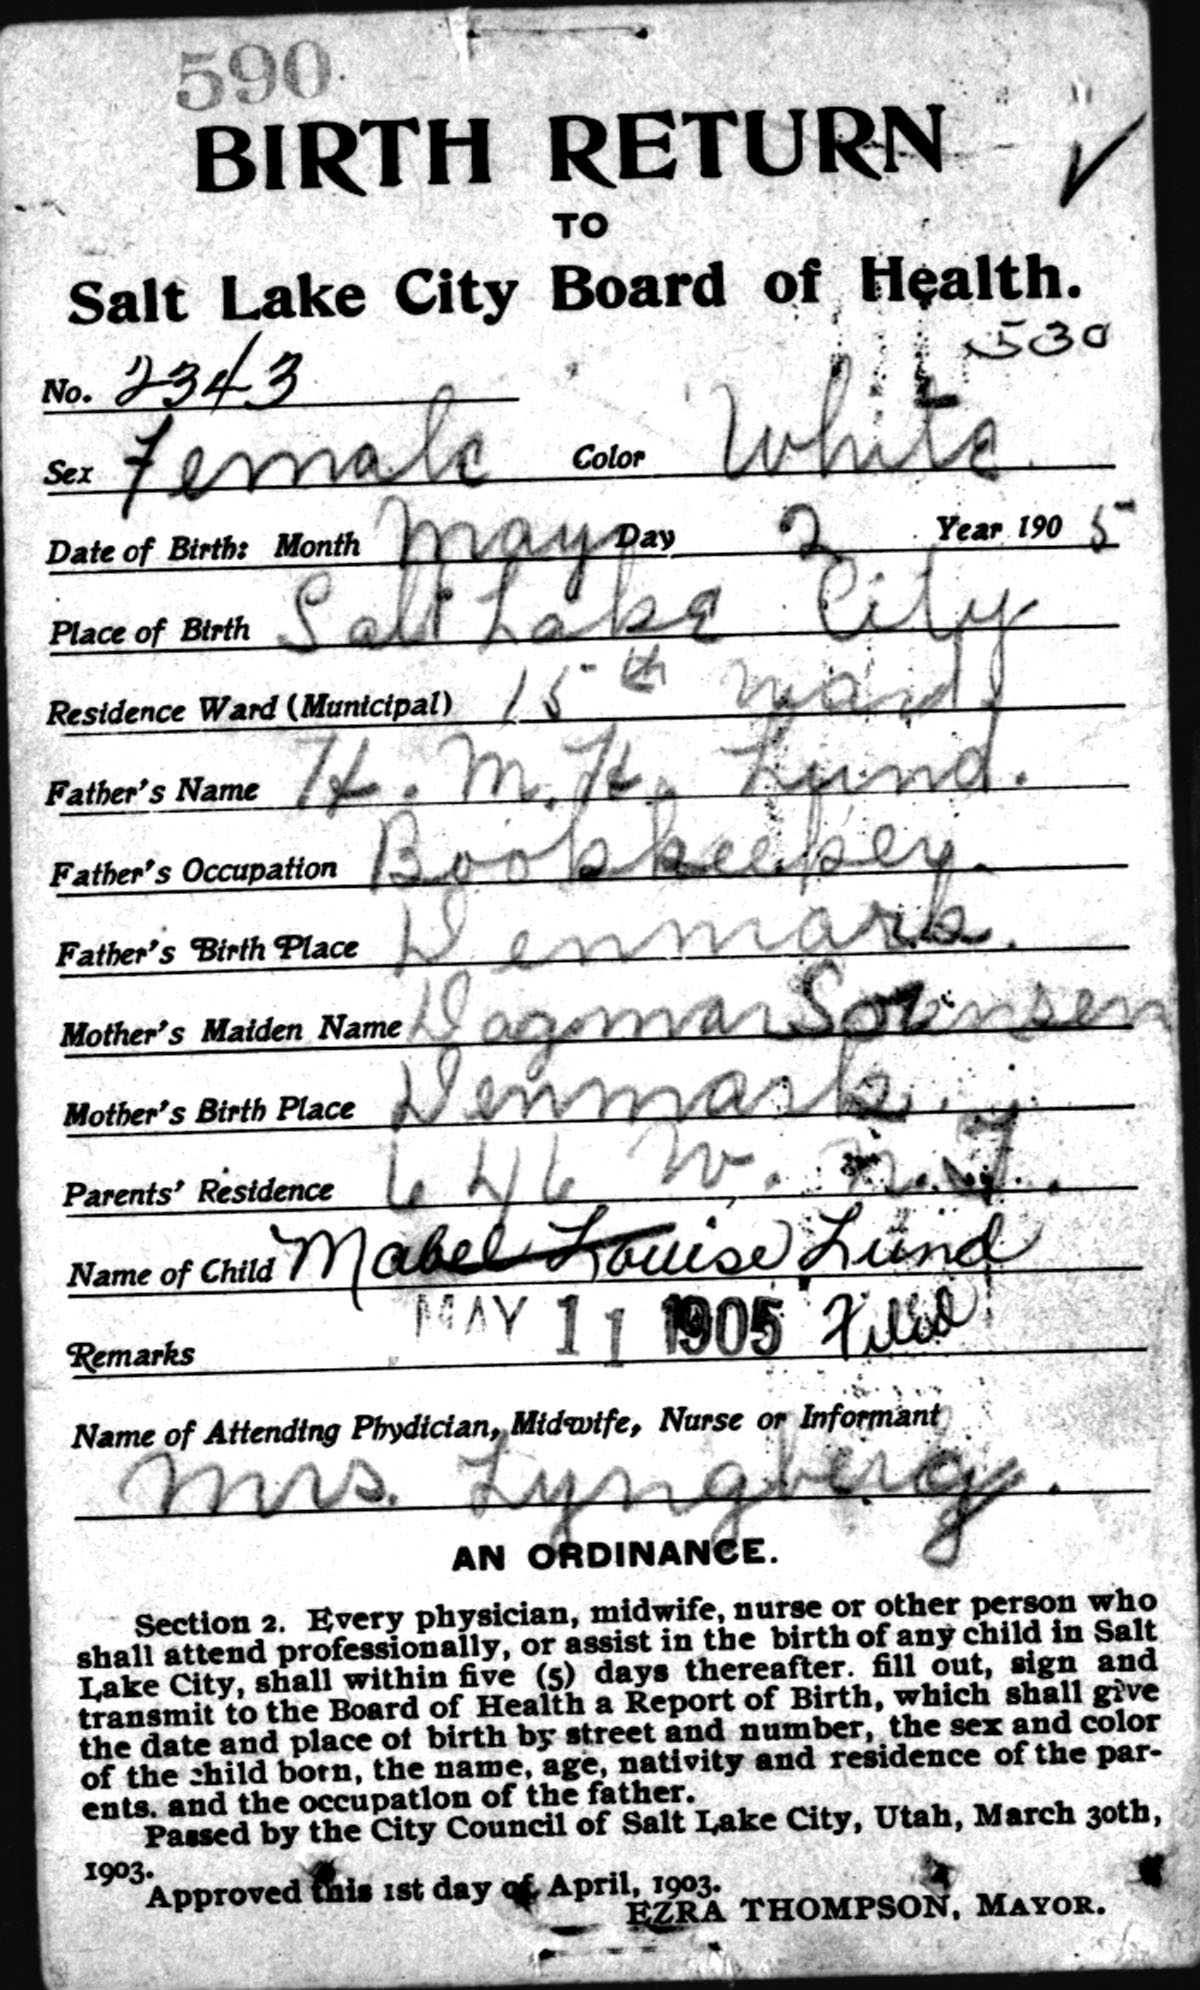 590
BIRTH RETURN
TO
Salt Lake City Board of Health.
530
No. 2343
Sex Female Color White
Date of Birth: Month May Day 2 Year 1905
Place of Birth Salt Lake City
Residence Ward (Municipal) 15th ward
Father's Name H. M. H. Lund.
Father's Occupation Bookkeeper.
Father's Birth Place Denmark.
Mother's Maiden Name Dagmar Sorensen
Mother's Birth Place Denmark.
Parents' Residence 646 W. N.T.
Name of Child Mabel Louise Lund
MAY 11 1905 Filed
Remarks
Name of Attending Phydician, Midwife, Nurse or Informant
Mrs. Lyngberg.
AN ORDINANCE.
Section 2. Every physician, midwife, nurse or other person who
shall attend professionally, or assist in the birth of any child in Salt
Lake City, shall within five (5) days thereafter. fill out, sign and
transmit to the Board of Health a Report of Birth, which shall give
the date and place of birth by street and number, the sex and color
of the child born, the name, age, nativity and residence of the par-
ents. and the occupation of the father.
Passed by the City Council of Salt Lake City, Utah, March 30th,
1903.
Approved this 1st day of April, 1903.
EZRA THOMPSON, MAYOR.